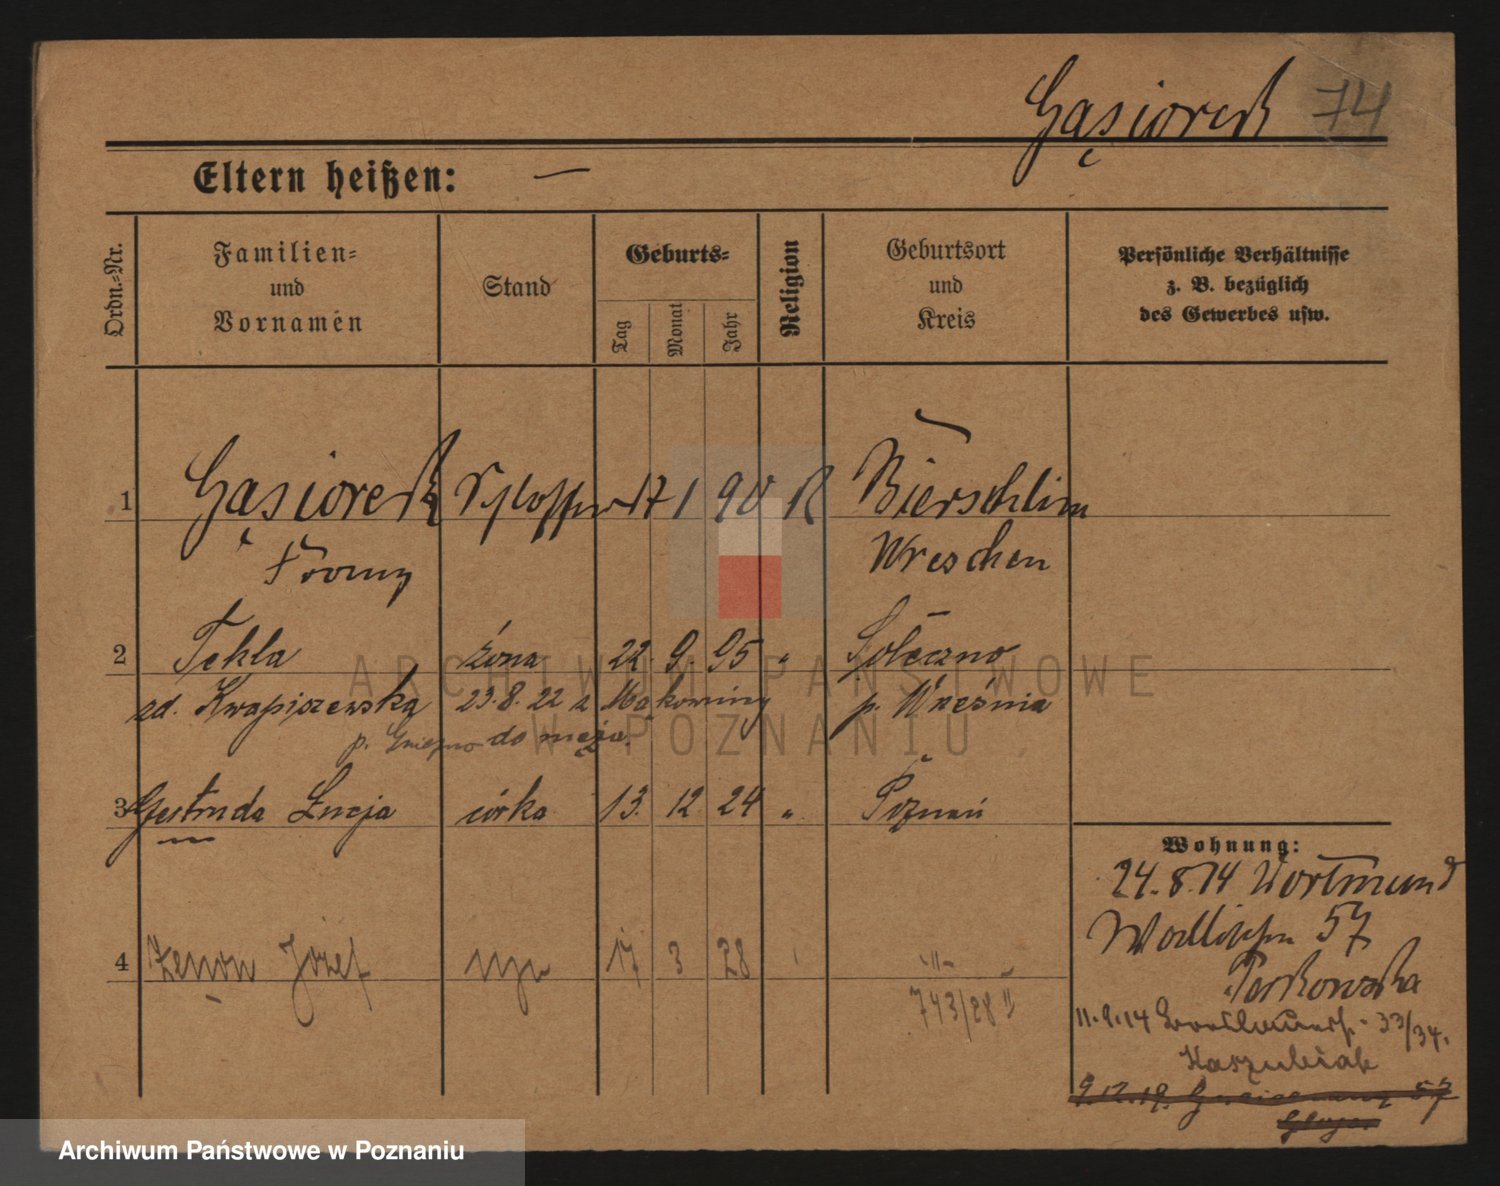 Gąsiorek 74
Eltern heißen: —
Ordn.-Nr.
Familien-
und
Vornamen
Stand
Geburts-
Tag
Monat
Jahr
Religion
Geburtsort
und
Kreis
Persönliche Verhältnisse
z. B. bezüglich
des Gewerbes usw.
1 Gąsiorek 17 1 90 K Bierschlin
Wreschen
2 Tekla żona 22. 9. 95 " Sołeczno
zd. Kwapiszewska 23.8.22 z Mąkownicy p. Września
p. Gniezno do męża.
3 Gertruda Łucja córka 13. 12 24 " Poznań
Wohnung:
24.8.14 Dortmund
57
4 Zenon Józef syn 17 3 28 -"-
743/28 II
11.9.14 33/34.
Kaszubiak
9.12.19. Gneisenaus 57
ARCHIWUM PAŃSTWOWE
W POZNANIU
Archiwum Państwowe w Poznaniu